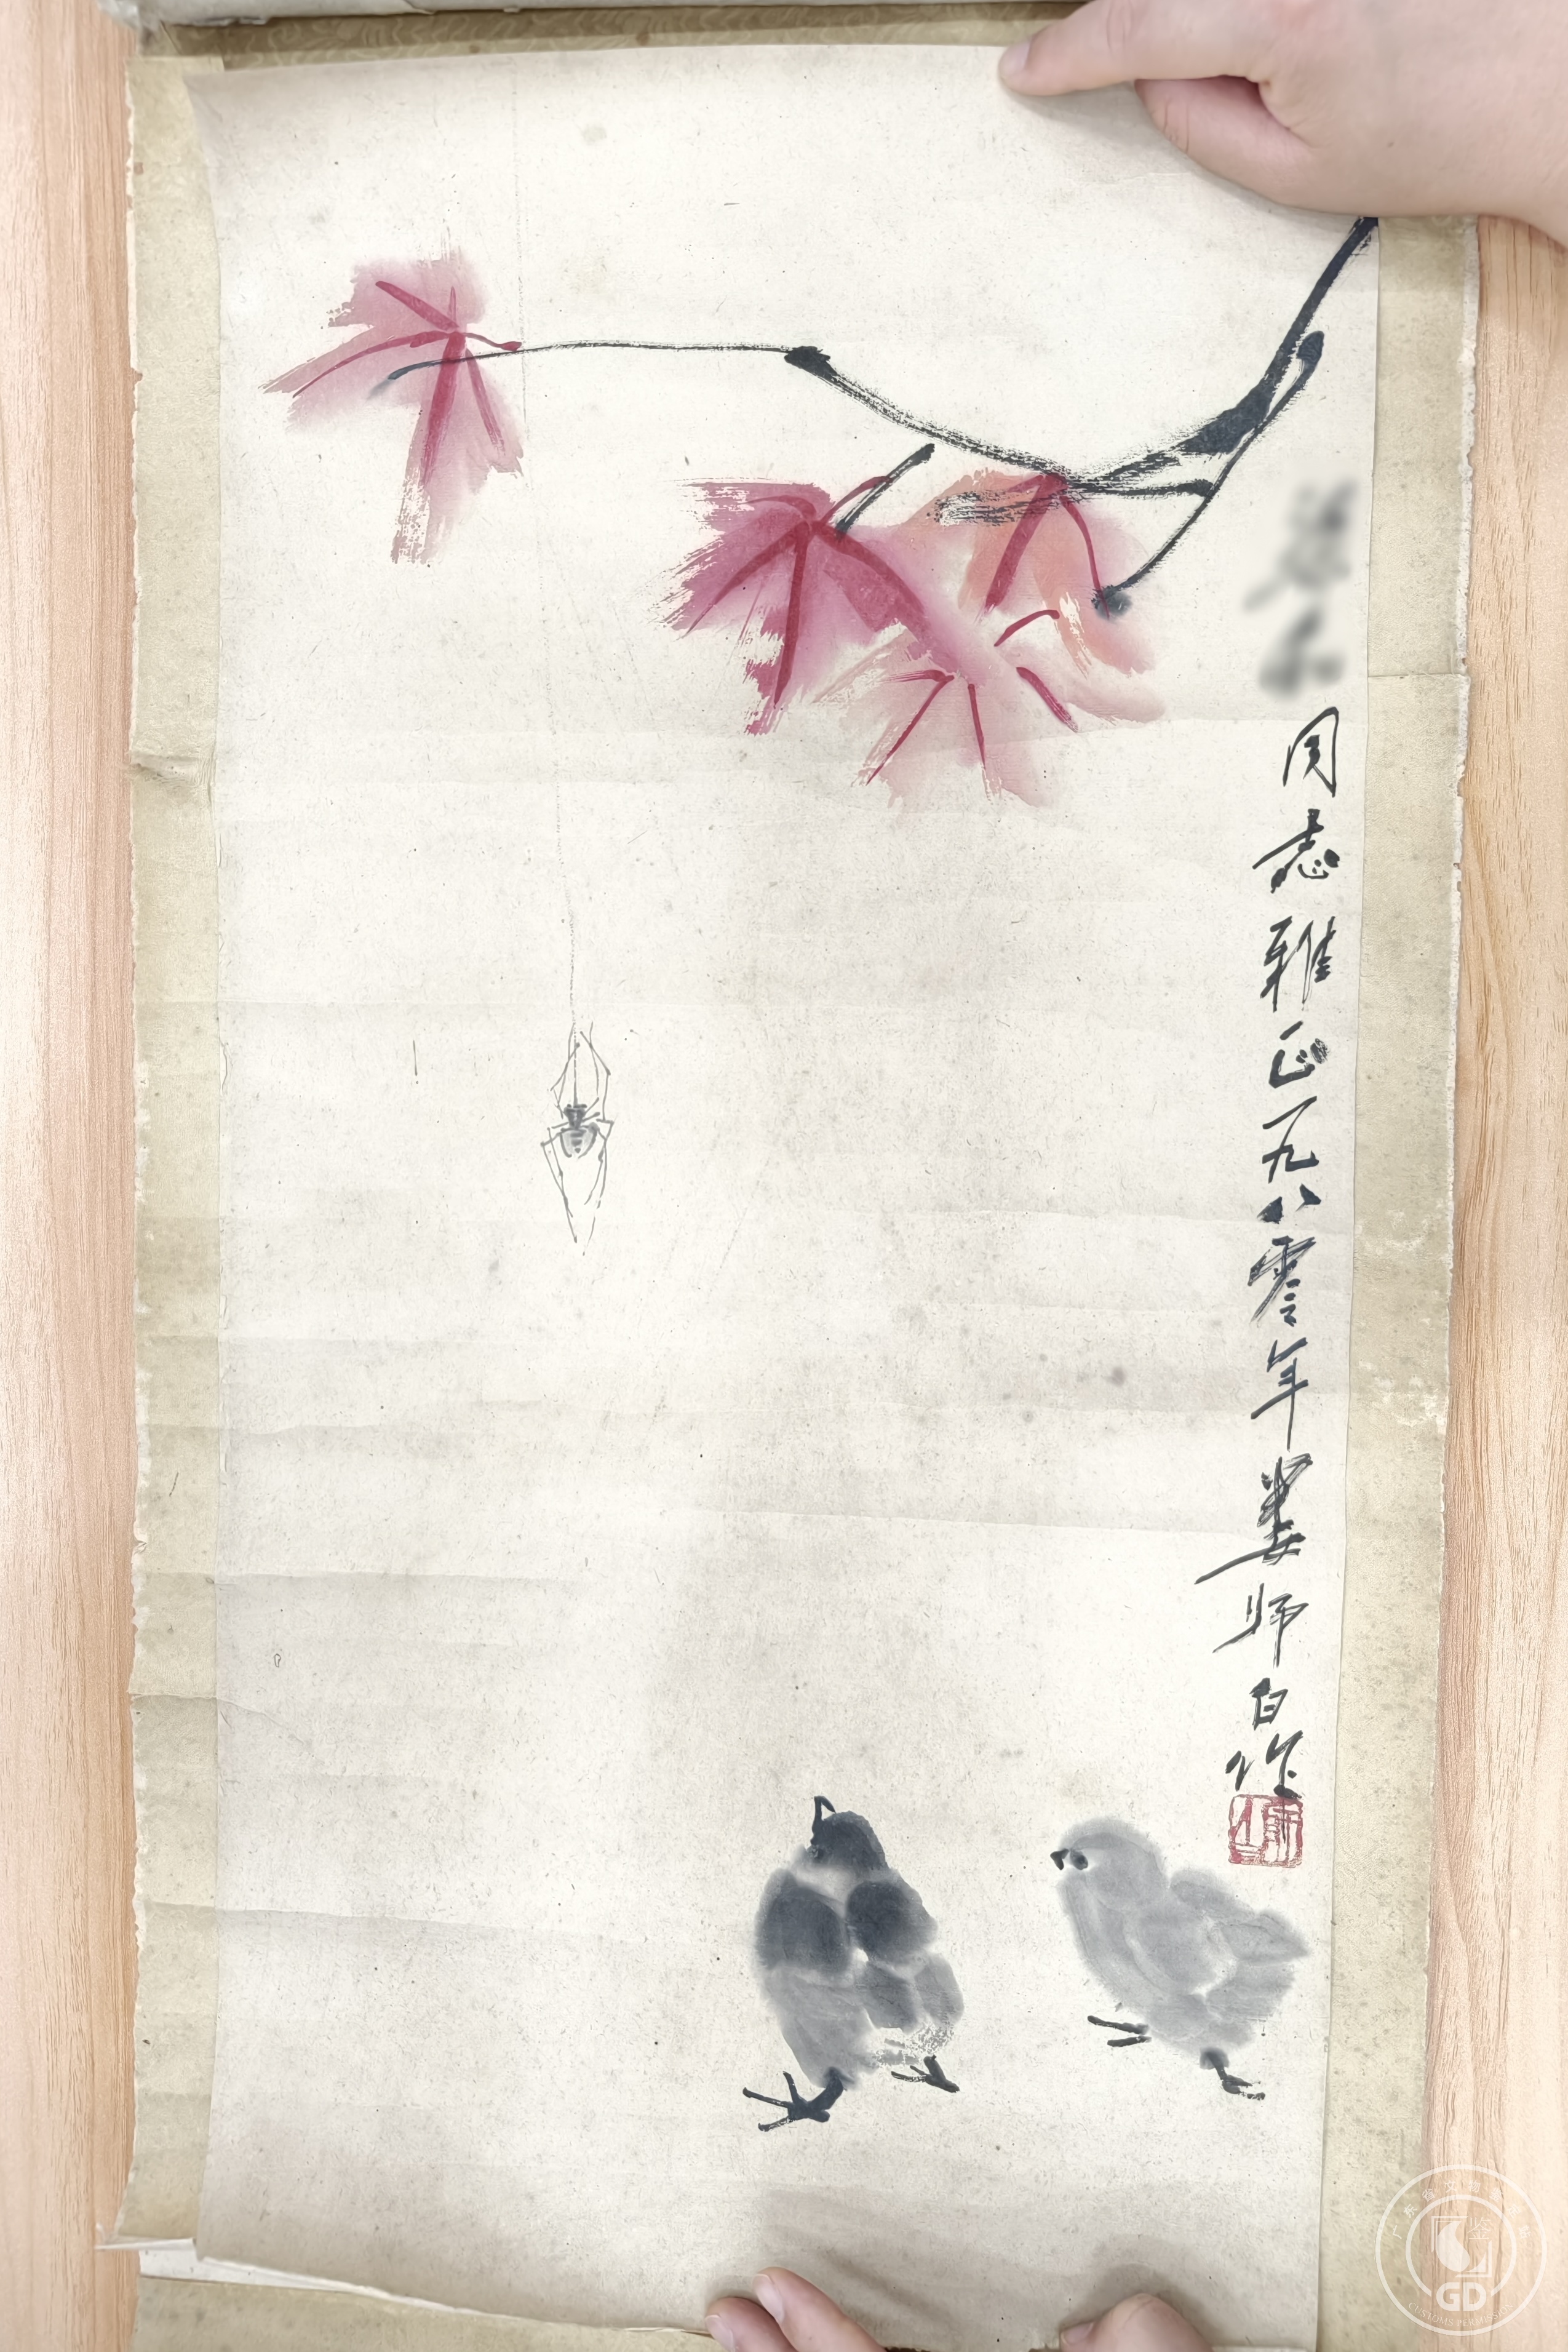 同志雅正一九八零年娄师白作
GD